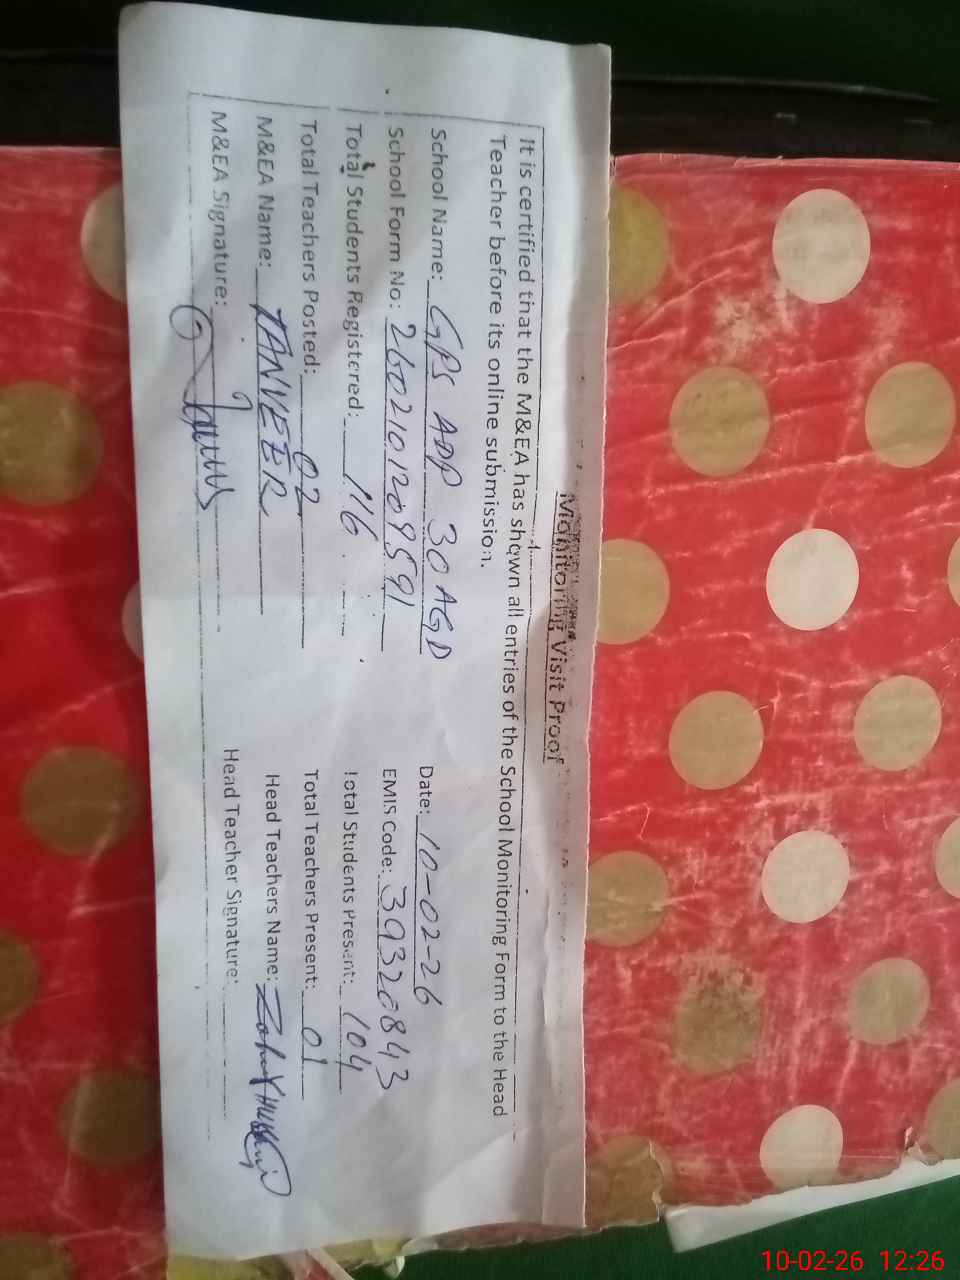 Monitoring Visit Proof
It is certified that the M&EA has shown all entries of the School Monitoring Form to the Head
Teacher before its online submission.
School Name: GPS ADP 30 AGD Date: 10-02-26
School Form No: 2602101209591 EMIS Code: 39320843
Total Students Registered: 116 Total Students Present: 104
Total Teachers Posted: 02 Total Teachers Present: 01
M&EA Name: TANVEER Head Teachers Name:
M&EA Signature: Head Teacher Signature:
10-02-26 12:26